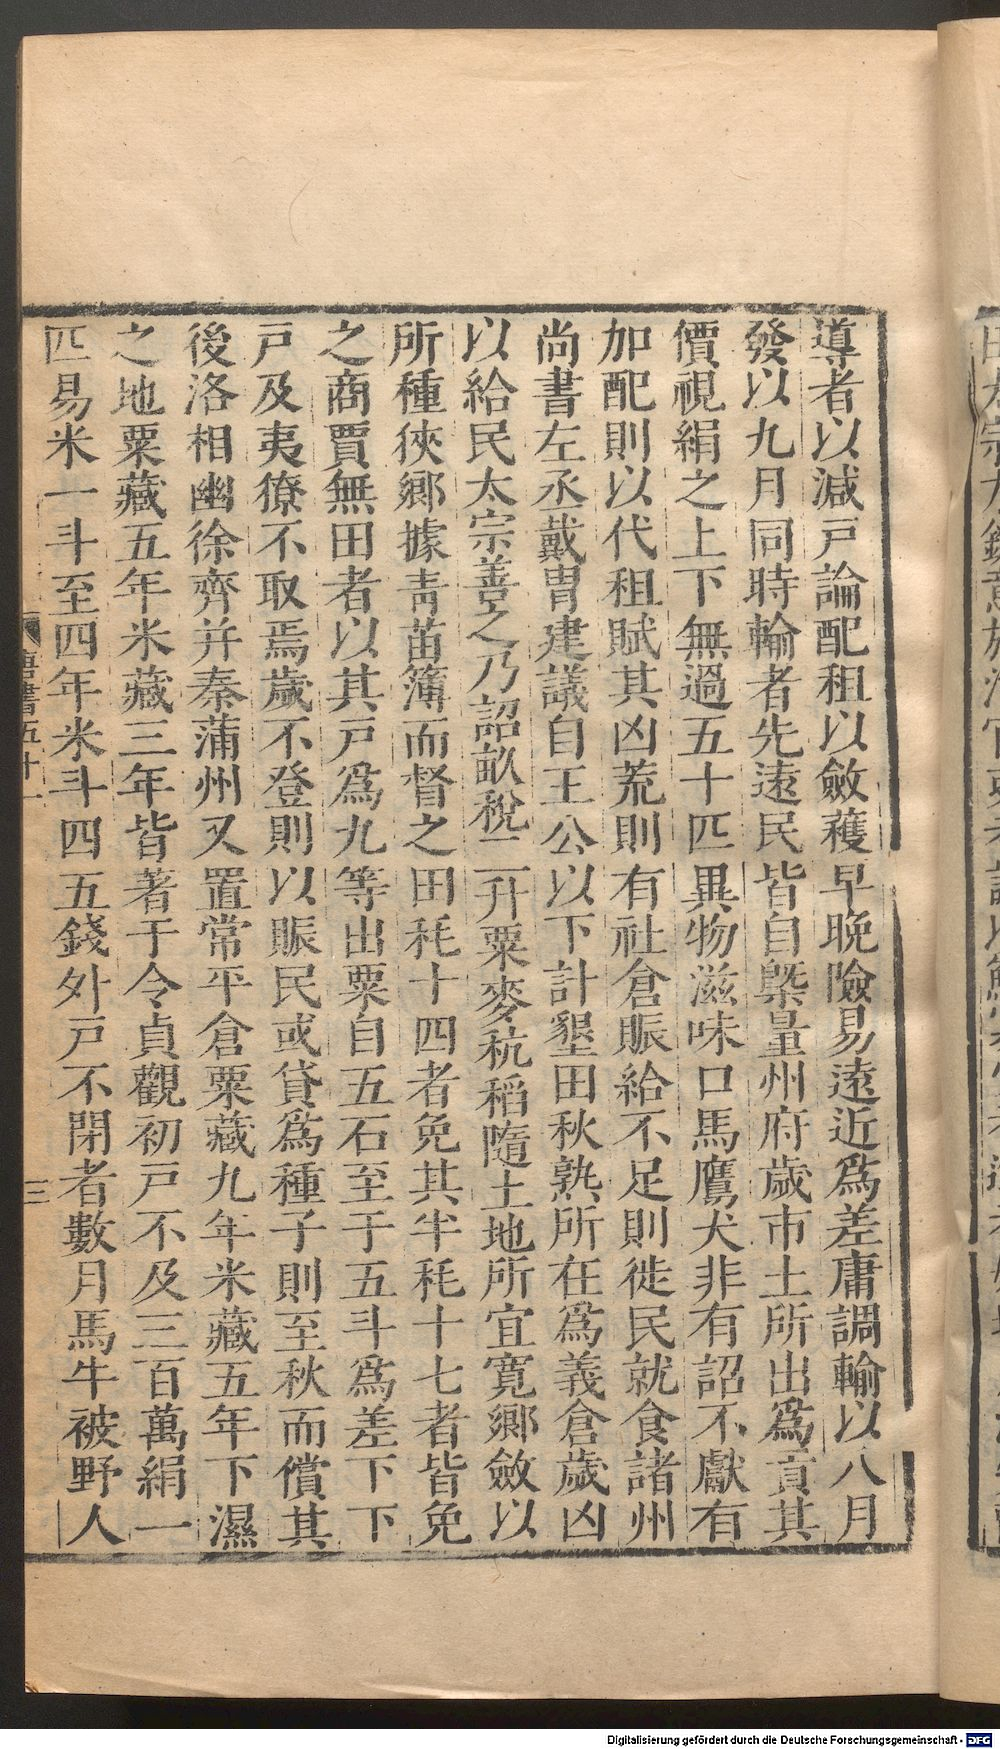 導者以減戸論配租以斂穫早晚險易遠近爲差庸調輸以八月
發以九月同時輸者先遠民皆自槩量州府歲市土所出爲貢其
價視絹之上下無過五十匹異物滋味口馬鷹犬非有詔不獻有
加配則以代租賦其凶荒則有社倉賑給不足則徙民就食諸州
尚書左丞戴胄建議自王公以下計墾田秋熟所在爲義倉歲凶
以給民太宗善之乃詔畝稅二升粟麥秔稻隨土地所宜寬鄉斂以
所種狹鄉據靑苗簿而督之田耗十四者免其半耗十七者皆免
之商賈無田者以其戸爲九等出粟自五石至于五斗爲差下下
戸及夷獠不取焉歲不登則以賑民或貸爲種子則至秋而償其
後洛相幽徐齊并秦蒲州又置常平倉粟藏九年米藏五年下濕
之地粟藏五年米藏三年皆著于令貞觀初戸不及三百萬絹一
匹易米一斗至四年米斗四五錢外戸不閉者數月馬牛被野人
唐書五十一
三
Digitalisierung gefördert durch die Deutsche Forschungsgemeinschaft - DFG